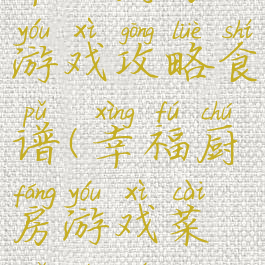 yóu xì gōng lüè shí
游戏攻略食
pǔ xìng fú chú
谱(幸福厨
fáng yóu xì cài
房游戏菜